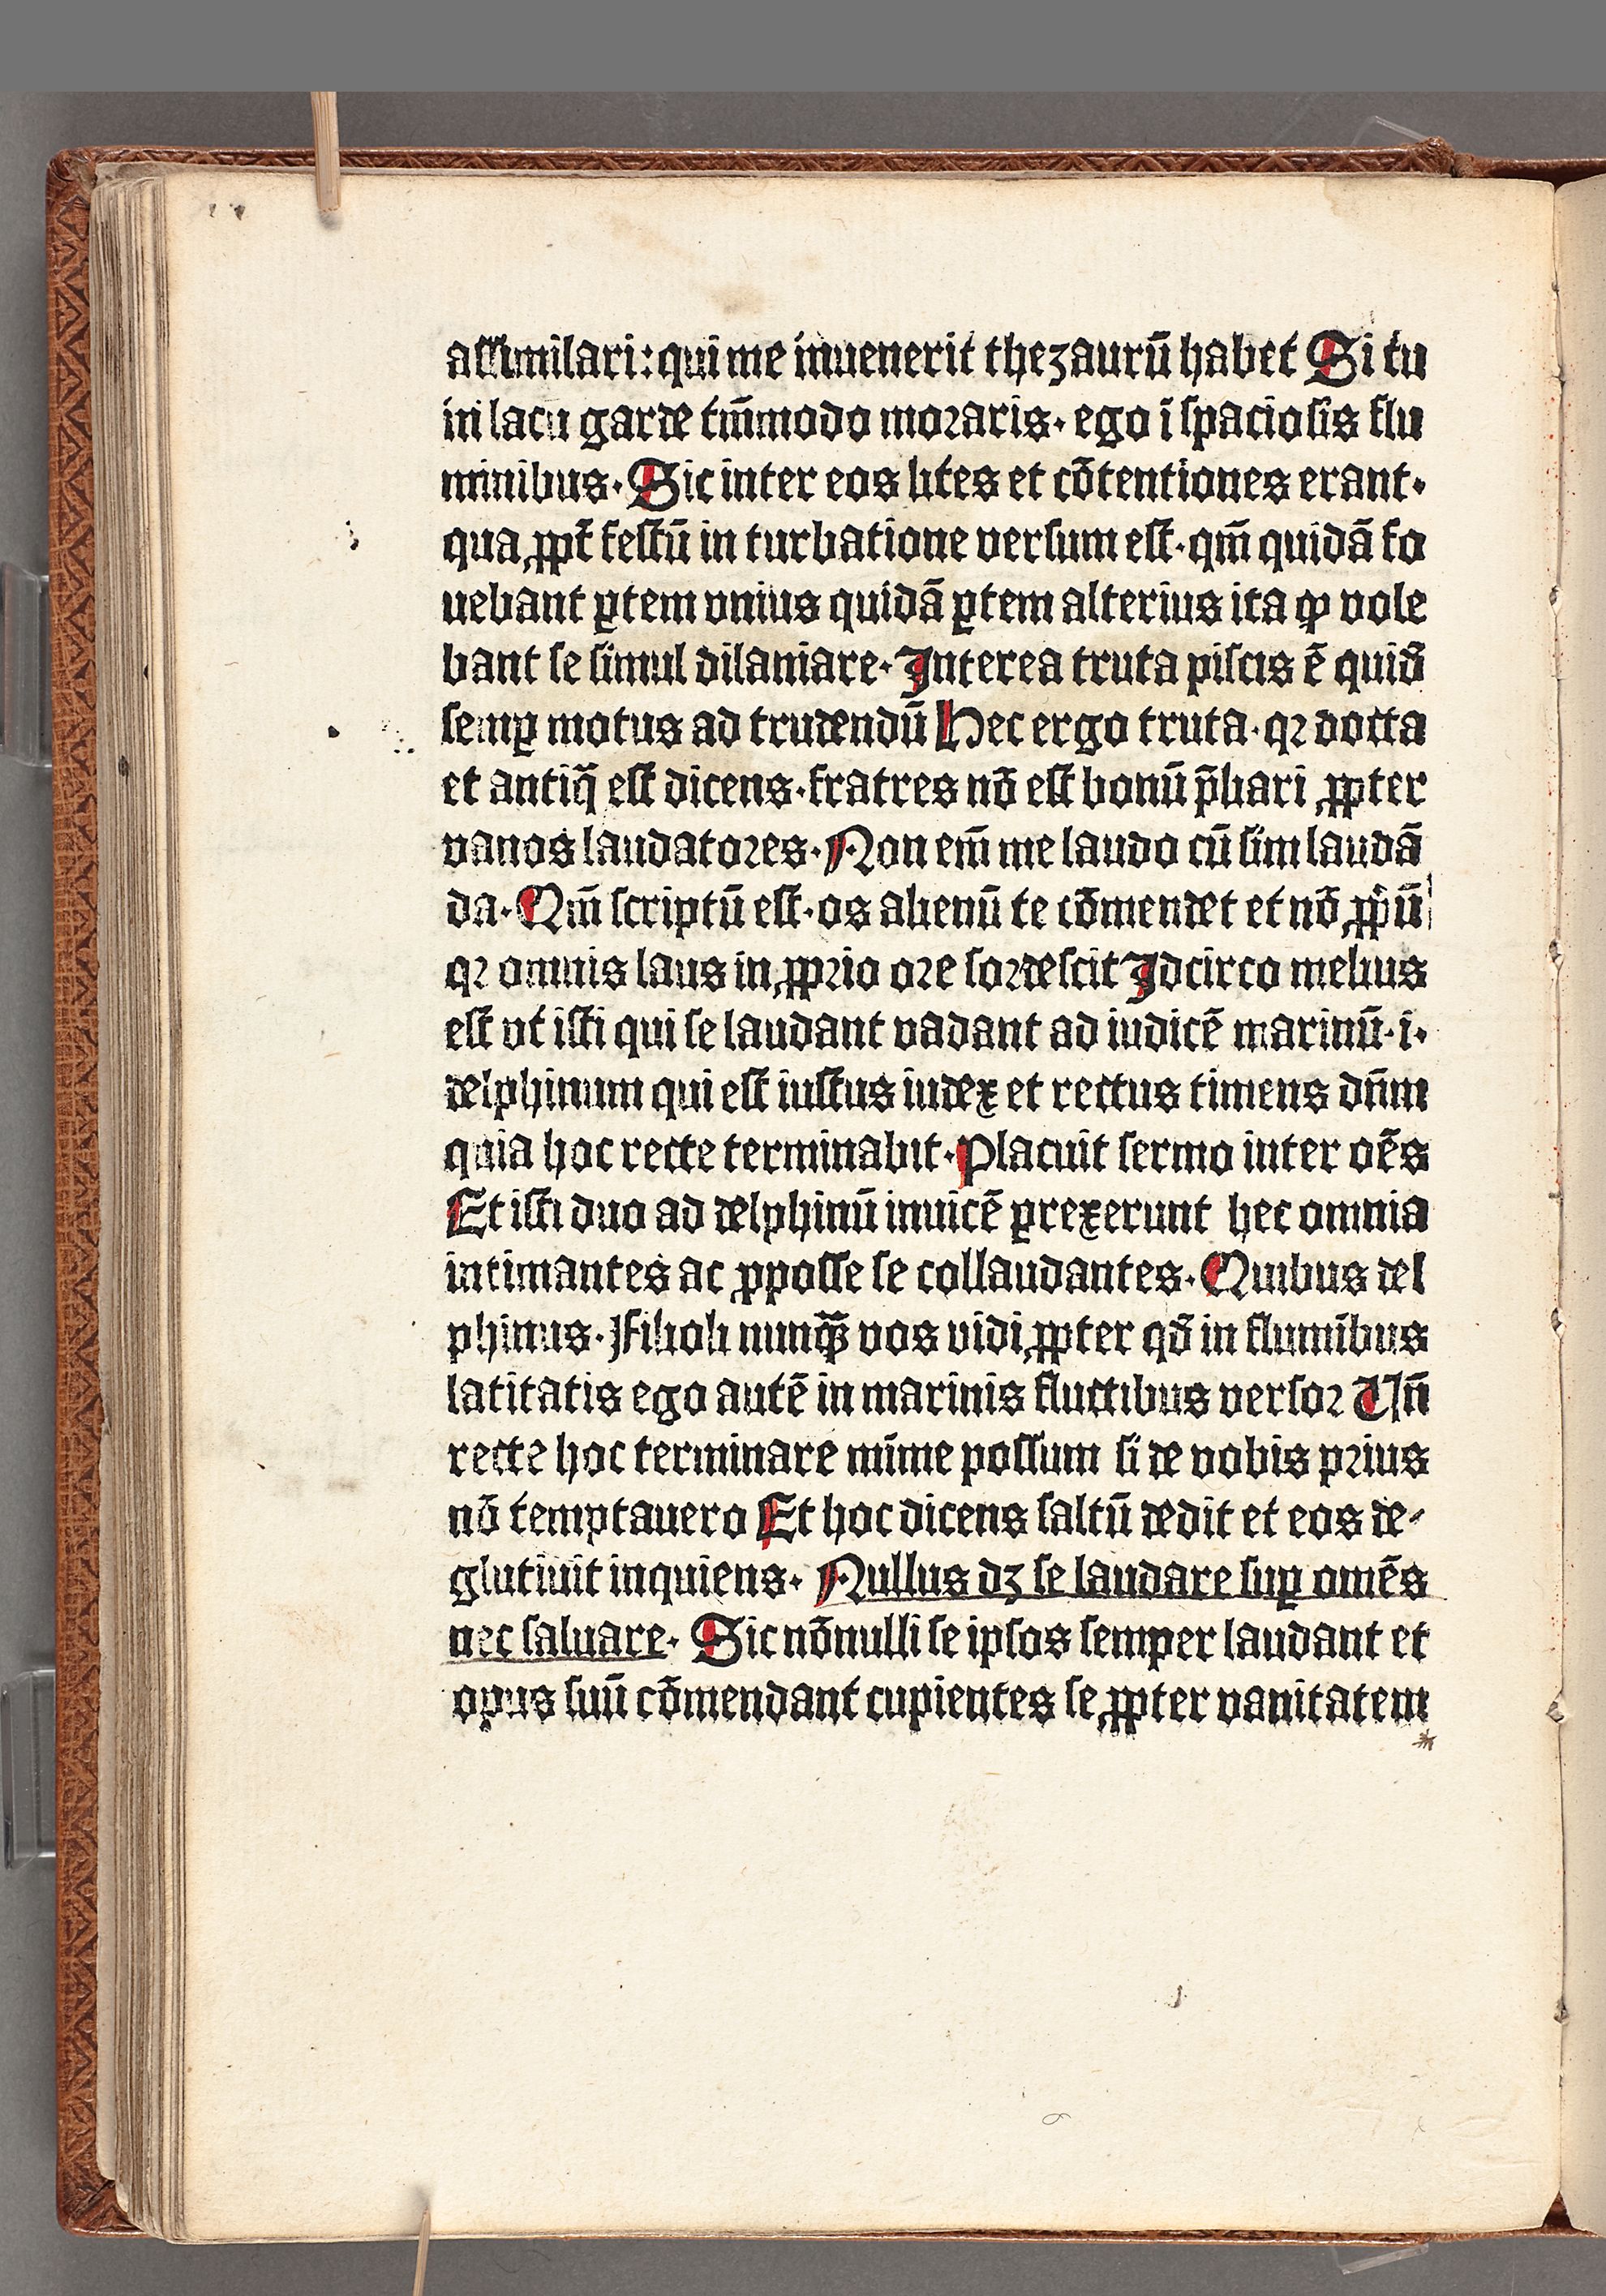 aſſimilari: qui me inuenerit thezaurū habet Si tu
in lacu garde tm̄modo moꝛaris· ego ī ſpacioſis flu
minibus· Sic inter eos lites et cōtentiones erant·
qua ꝓpt̄ feſtū in turbatione verſum eſt· qm̄ quidā fo
uebant ꝑtem vnius quidā ꝑtem alterius ita ꝙ vole
bant ſe ſimul dilaniare· Interea truta piſcis ē quid̄
ſemꝑ motus ad trudendū Hec ergo truta· qꝛ docta
et antiq̄ eſt dicens· fratres nō eſt bonū p̄liari ꝓpter
vanos laudatoꝛes· Non em̄ me laudo cū ſim laudā
da· Qm̄ ſcriptū eſt· os alienū te cōmendet et nō ꝓpiū
qꝛ omnis laus in ꝓprio oꝛe ſoꝛdeſcit Idcirco melius
eſt vt iſti qui ſe laudant vadant ad iudicē marinū· i·
delphinum qui eſt iuſtus iudex et rectus timens dn̄m
quia hoc recte terminabit· Placuit ſermo inter oēs
Et iſti duo ad delphinū inuicē ꝑrexerunt hec omnia
intimantes ac ꝓpoſſe ſe collaudantes· Quibus del
phinus· Filioli nunꝗ̄ vos vidi ꝓpter qd̄ in flumībus
latitatis ego autē in marinis fluctibus verſoꝛ Vn̄
recte hoc terminare mīme poſſum ſi de vobis pꝛius
nō temptauero Et hoc dicens ſaltū dedit et eos de⸗
glutiuit inquiens· Nullus dꝫ ſe laudare ſuꝑ omēs
nec ſaluare· Sic nōnulli ſe ipſos ſemper laudant et
opus ſuū cōmendant cupientes ſe ꝓpter vanitatem